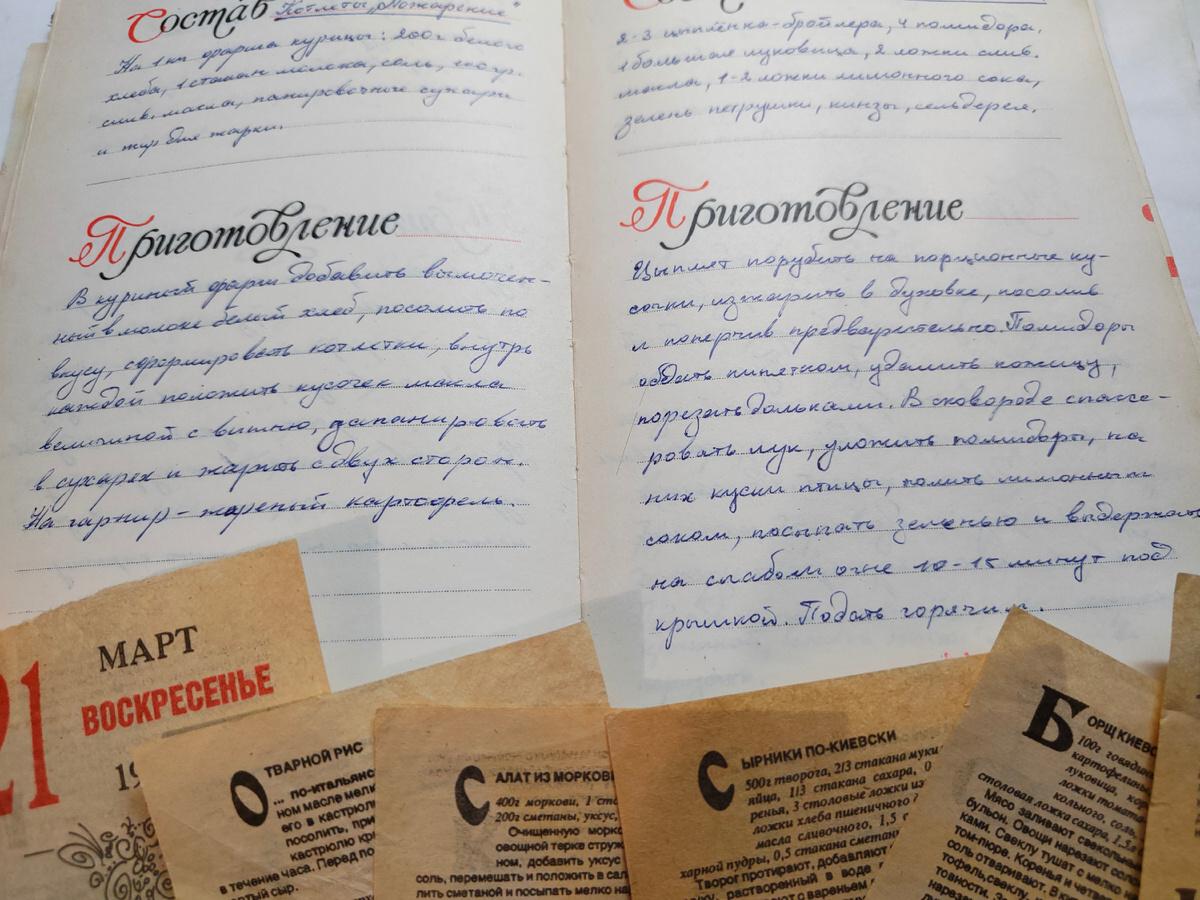 Состав Котлеты „Пожарские"
На 1 кг фарша курицы: 200г белого
хлеба, 1 стакан молока, соль, 100 гр.
слив. масла, панировочные сухари
и жир для жарки.
Приготовление
В куриный фарш добавить вымочен-
ный в молоке белый хлеб, посолить по
вкусу, сформировать котлетки, внутрь
каждой положить кусочек масла
величиной с вишню, запанировать
в сухарях и жарить с двух сторон.
На гарнир - жареный картофель.
2-3 цыплёнка-бройлера, 4 помидора,
1 большая луковица, 2 ложки слив.
масла, 1-2 ложки лимонного сока,
зелень петрушки, кинзы, сельдерея.
Приготовление
Цыплят порубить на порционные ку-
сочки, изжарить в духовке, посолив
и поперчив предварительно. Помидоры
обдать кипятком, удалить кожицу,
порезать дольками. В сковороде спассе-
ровать лук, уложить помидоры, на
них куски птицы, полить лимонным
соком, посыпать зеленью и выдержать
на слабом огне 10-15 минут под
крышкой. Подать горячим.
21
МАРТ
ВОСКРЕСЕНЬЕ
19
ОТВАРНОЙ РИС
... по-итальянс
ном масле мелк
его в кастрюлю
посолить, при
кастрюлю кр
в течение часа. Перед по
тертый сыр.
САЛАТ ИЗ МОРКОВИ
400г моркови, 1 ста
200г сметаны, уксус,
Очищенную морко
овощной терке струж
ном, добавить уксус
соль, перемешать и положить в сал
лить сметаной и посыпать мелко на
СЫРНИКИ ПО-КИЕВСКИ
500г творога, 2/3 стакана муки
яйца, 1/3 стакана сахара, 0
ренья, 3 столовые ложки из
ложки хлеба пшеничного
масла сливочного, 1,5
харной пудры, 0,5 стакана сметан
Творог протирают, добавляют
растворенный в воде
с вареньем
БОРЩ КИЕВС
100г говядин
картофелин
луковица, кор
ложки томат
кольного, соль,
столовая ложка сахара, 1,5л
Мясо заливают свекольным
бульон. Овощи нарезают солом
ками. Свеклу тушат с мелко н
том-пюре. Коренья и четвер
соль отваривают. В к
тофель, свеклу,
товности. За
нарез